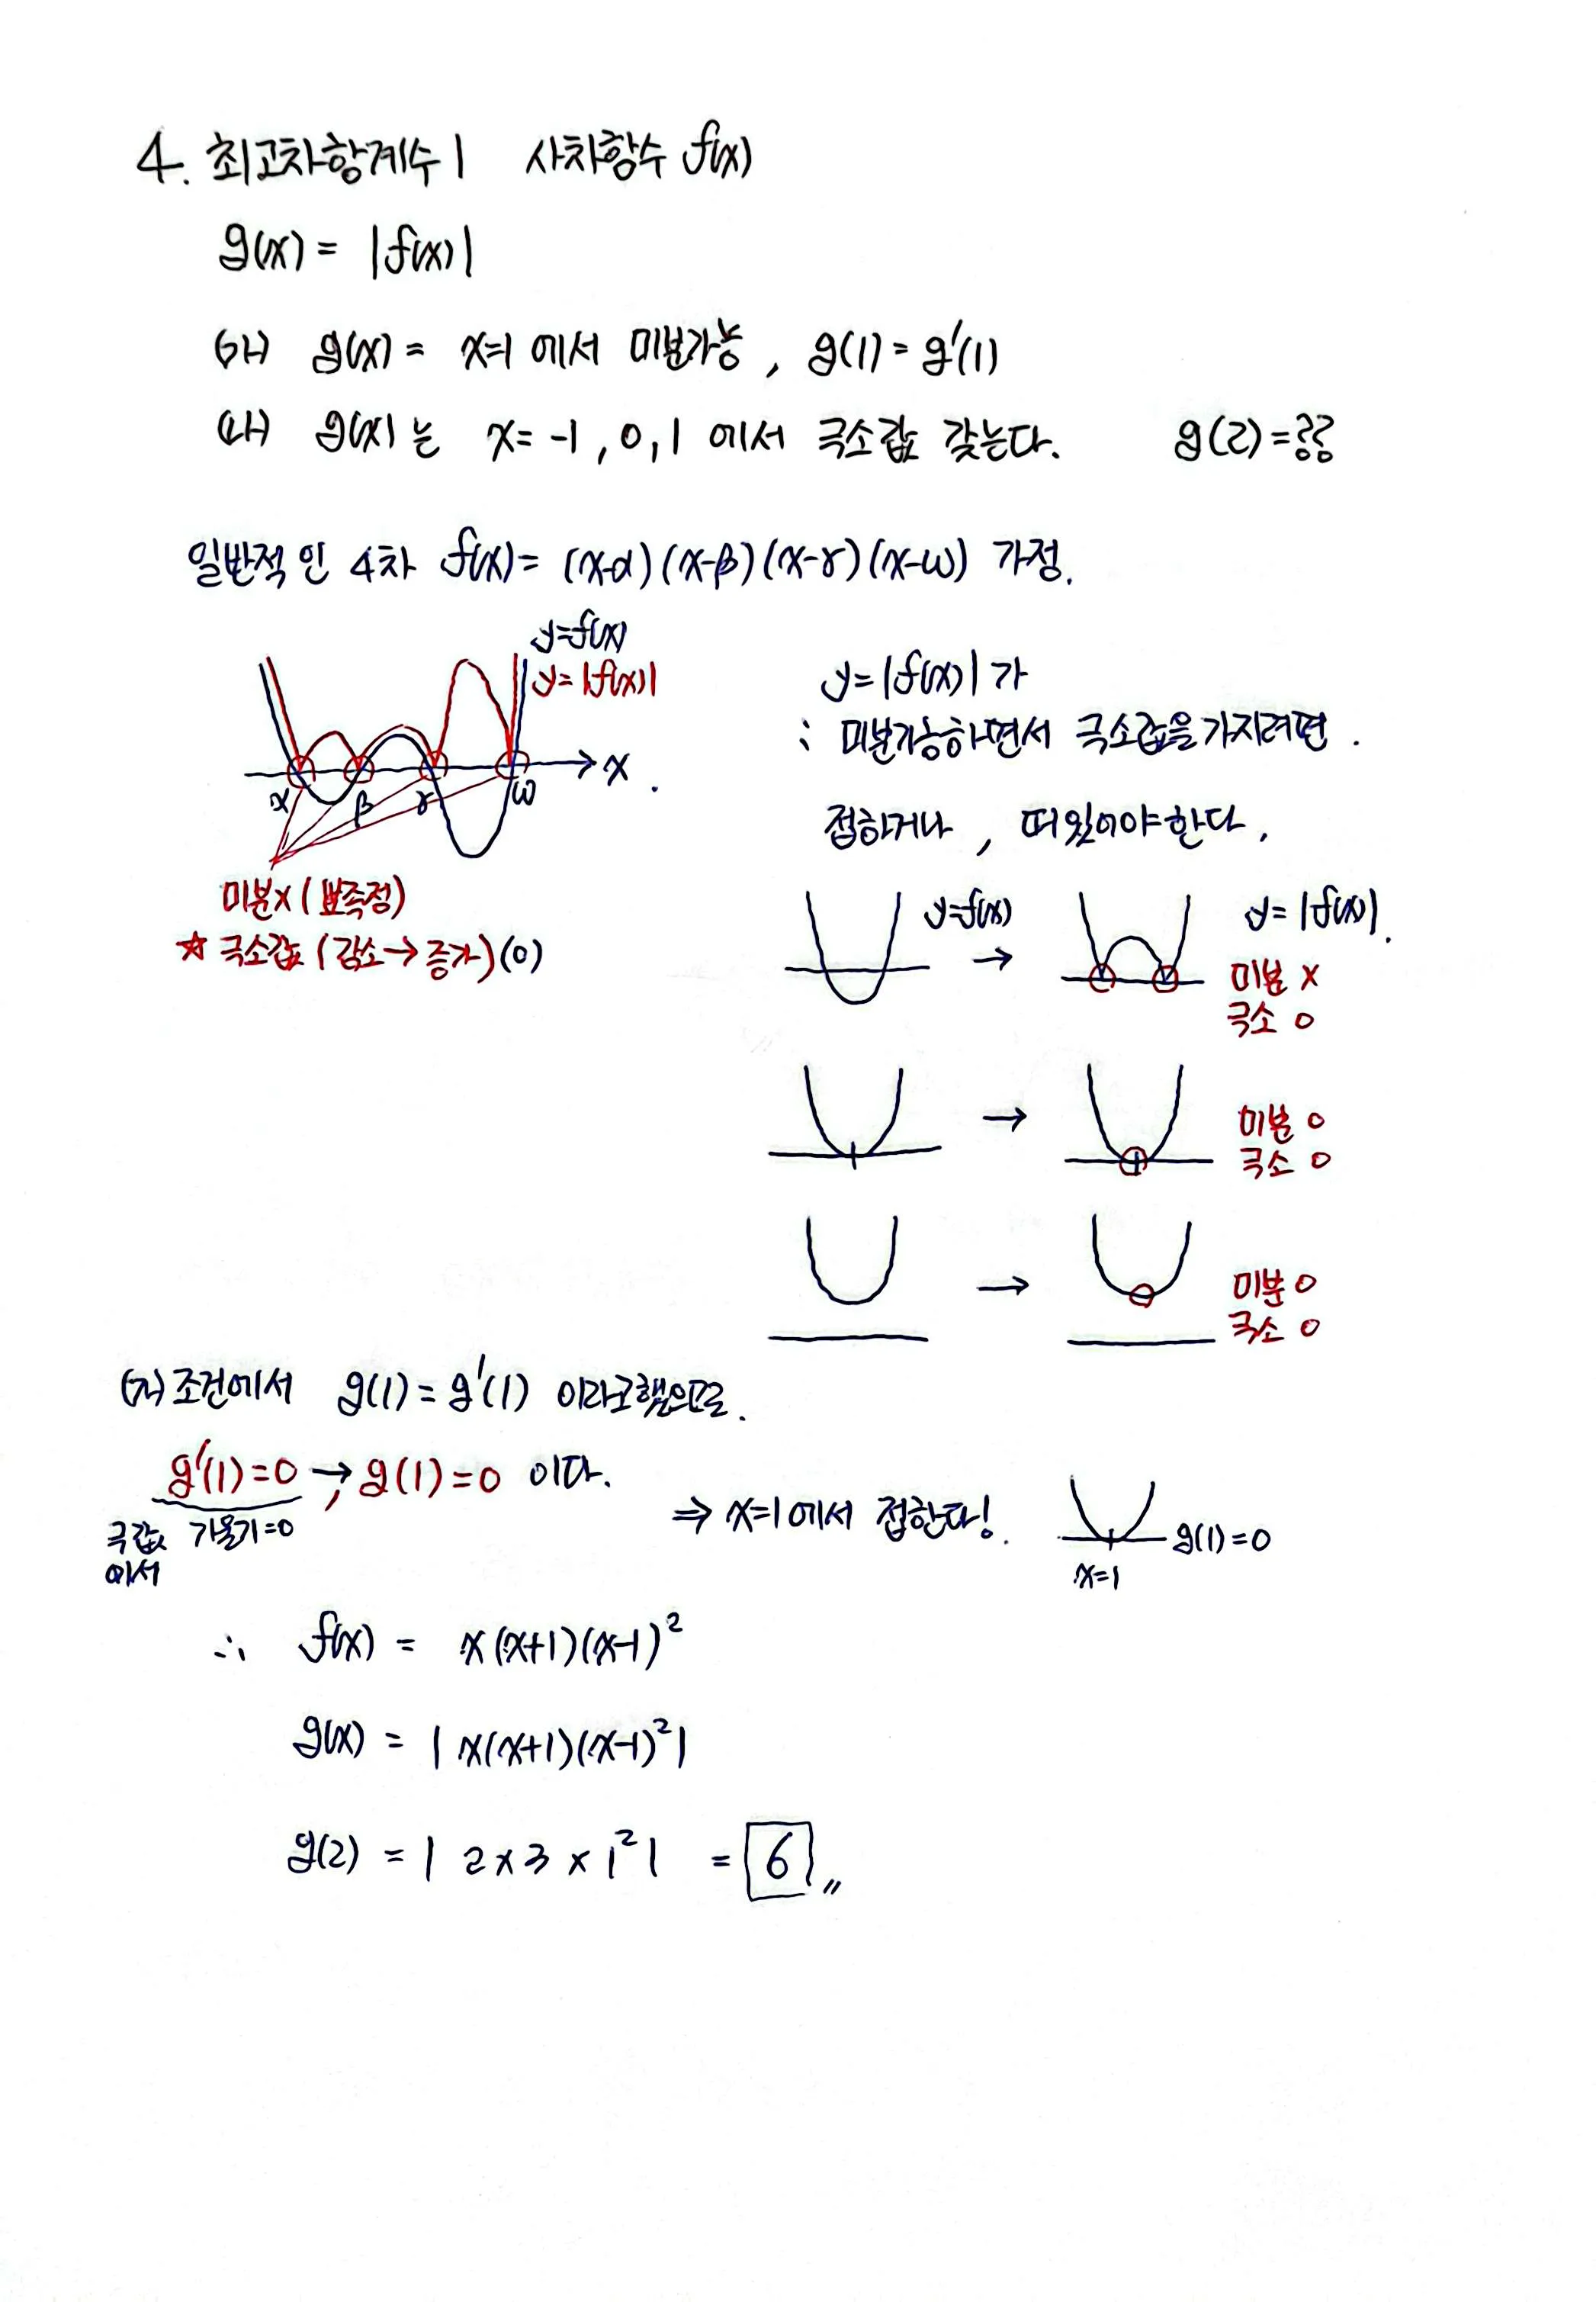 4. 최고차항계수 1 사차함수 f(x)
g(x) = |f(x)|
(가) g(x) = x=1 에서 미분가능, g(1) = g'(1)
(나) g(x)는 x= -1, 0, 1 에서 극소값 갖는다. g(2)=??
일반적인 4차 f(x) = (x-α)(x-β)(x-γ)(x-ω) 가정.
y=f(x)
y=|f(x)|
x
α β γ ω
미분x (뾰족점)
☆ 극소값 (감소→증가)(0)
y=|f(x)| 가
: 미분가능하면서 극소값을 가지려면.
접하거나, 떠있어야한다.
y=f(x) → y=|f(x)|.
미분 x
극소 o
→ 미분 o
극소 o
→ 미분 o
극소 o
(가)조건에서 g(1) = g'(1) 이라고했으므로.
g'(1)=0 →, g(1)=0 이다.
극값에서 기울기=0
⇒ x=1에서 접한다!. g(1)=0
x=1
∴ f(x) = x(x+1)(x-1)²
g(x) = |x(x+1)(x-1)²|
g(2) = | 2×3×1² | = 6 〃